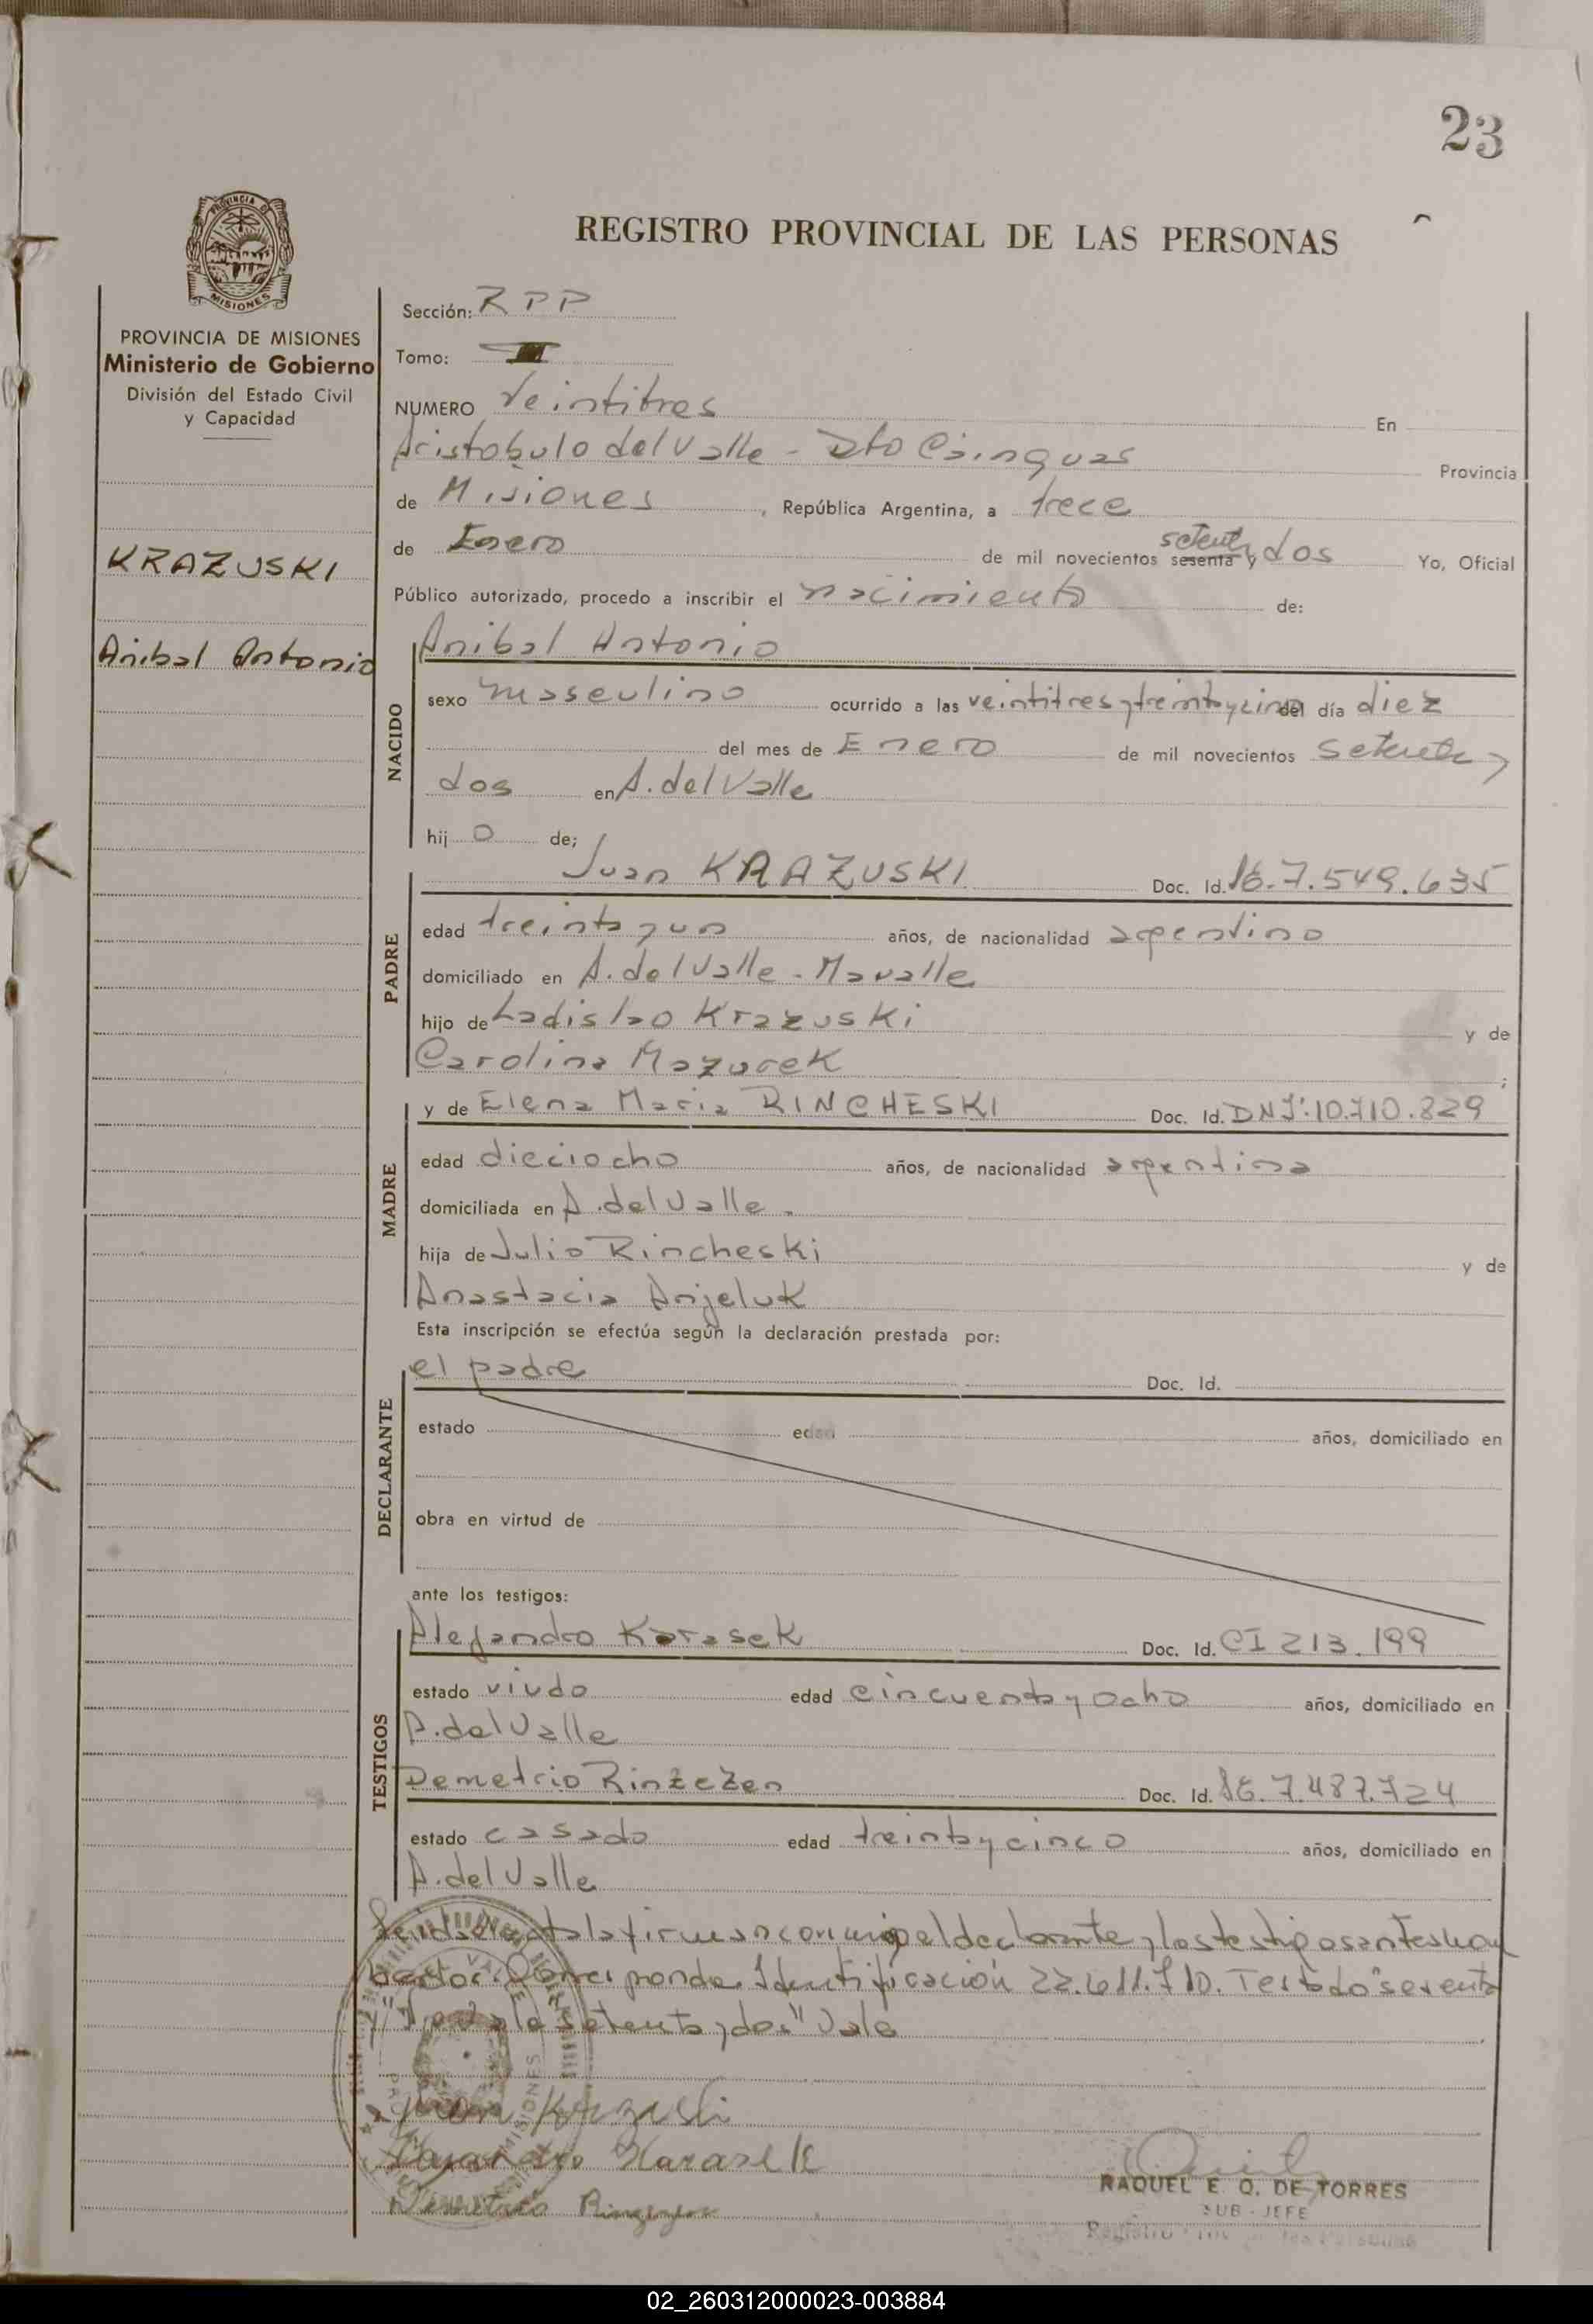 23
PROVINCIA DE
MISIONES
REGISTRO PROVINCIAL DE LAS PERSONAS
PROVINCIA DE MISIONES
Ministerio de Gobierno
División del Estado Civil
y Capacidad
KRAZUSKI
Anibal Antonio
Sección: RPP
Tomo:
NUMERO Veintitres En
Aristobulo del Valle - Dto Cainguas Provincia
de Misiones, República Argentina, a trece
de Enero de mil novecientos sesenta y setenta y dos Yo, Oficial
Público autorizado, procedo a inscribir el nacimiento de:
NACIDO
Anibal Antonio
sexo masculino ocurrido a las veintitres y treinta y cinco del día diez
del mes de Enero de mil novecientos setenta y
dos en A. del Valle
hijo de;
PADRE
Juan KRAZUSKI Doc. Id. 7.549.635
edad treinta y un años, de nacionalidad argentino
domiciliado en A. del Valle -
hijo de Ladislao Krazuski y de
Carolina Mazurek ;
MADRE
y de Elena Maria RINCHESKI Doc. Id. DNI: 10.710.829
edad dieciocho años, de nacionalidad argentina
domiciliada en A. del Valle.
hija de Julio Rincheski y de
Anastacia Anjeluk
Esta inscripción se efectúa según la declaración prestada por:
DECLARANTE
el padre Doc. Id.
estado edad años, domiciliado en
obra en virtud de
ante los testigos:
TESTIGOS
Alejandro Karasek Doc. Id. CI 213.199
estado viudo edad cincuenta y ocho años, domiciliado en
A. del Valle
Demetrio Doc. Id. 7.487.724
estado casado edad treinta y cinco años, domiciliado en
A. del Valle
Leida el acta la firman conmigo el declarante y los testigos antes
Corresponde Identificación 22.611.710. Testado "sesenta
y" setenta y dos" Vale
Juan Krazuski
Karasek
Demetrio
RAQUEL E. Q. DE TORRES
SUB - JEFE
02_260312000023-003884